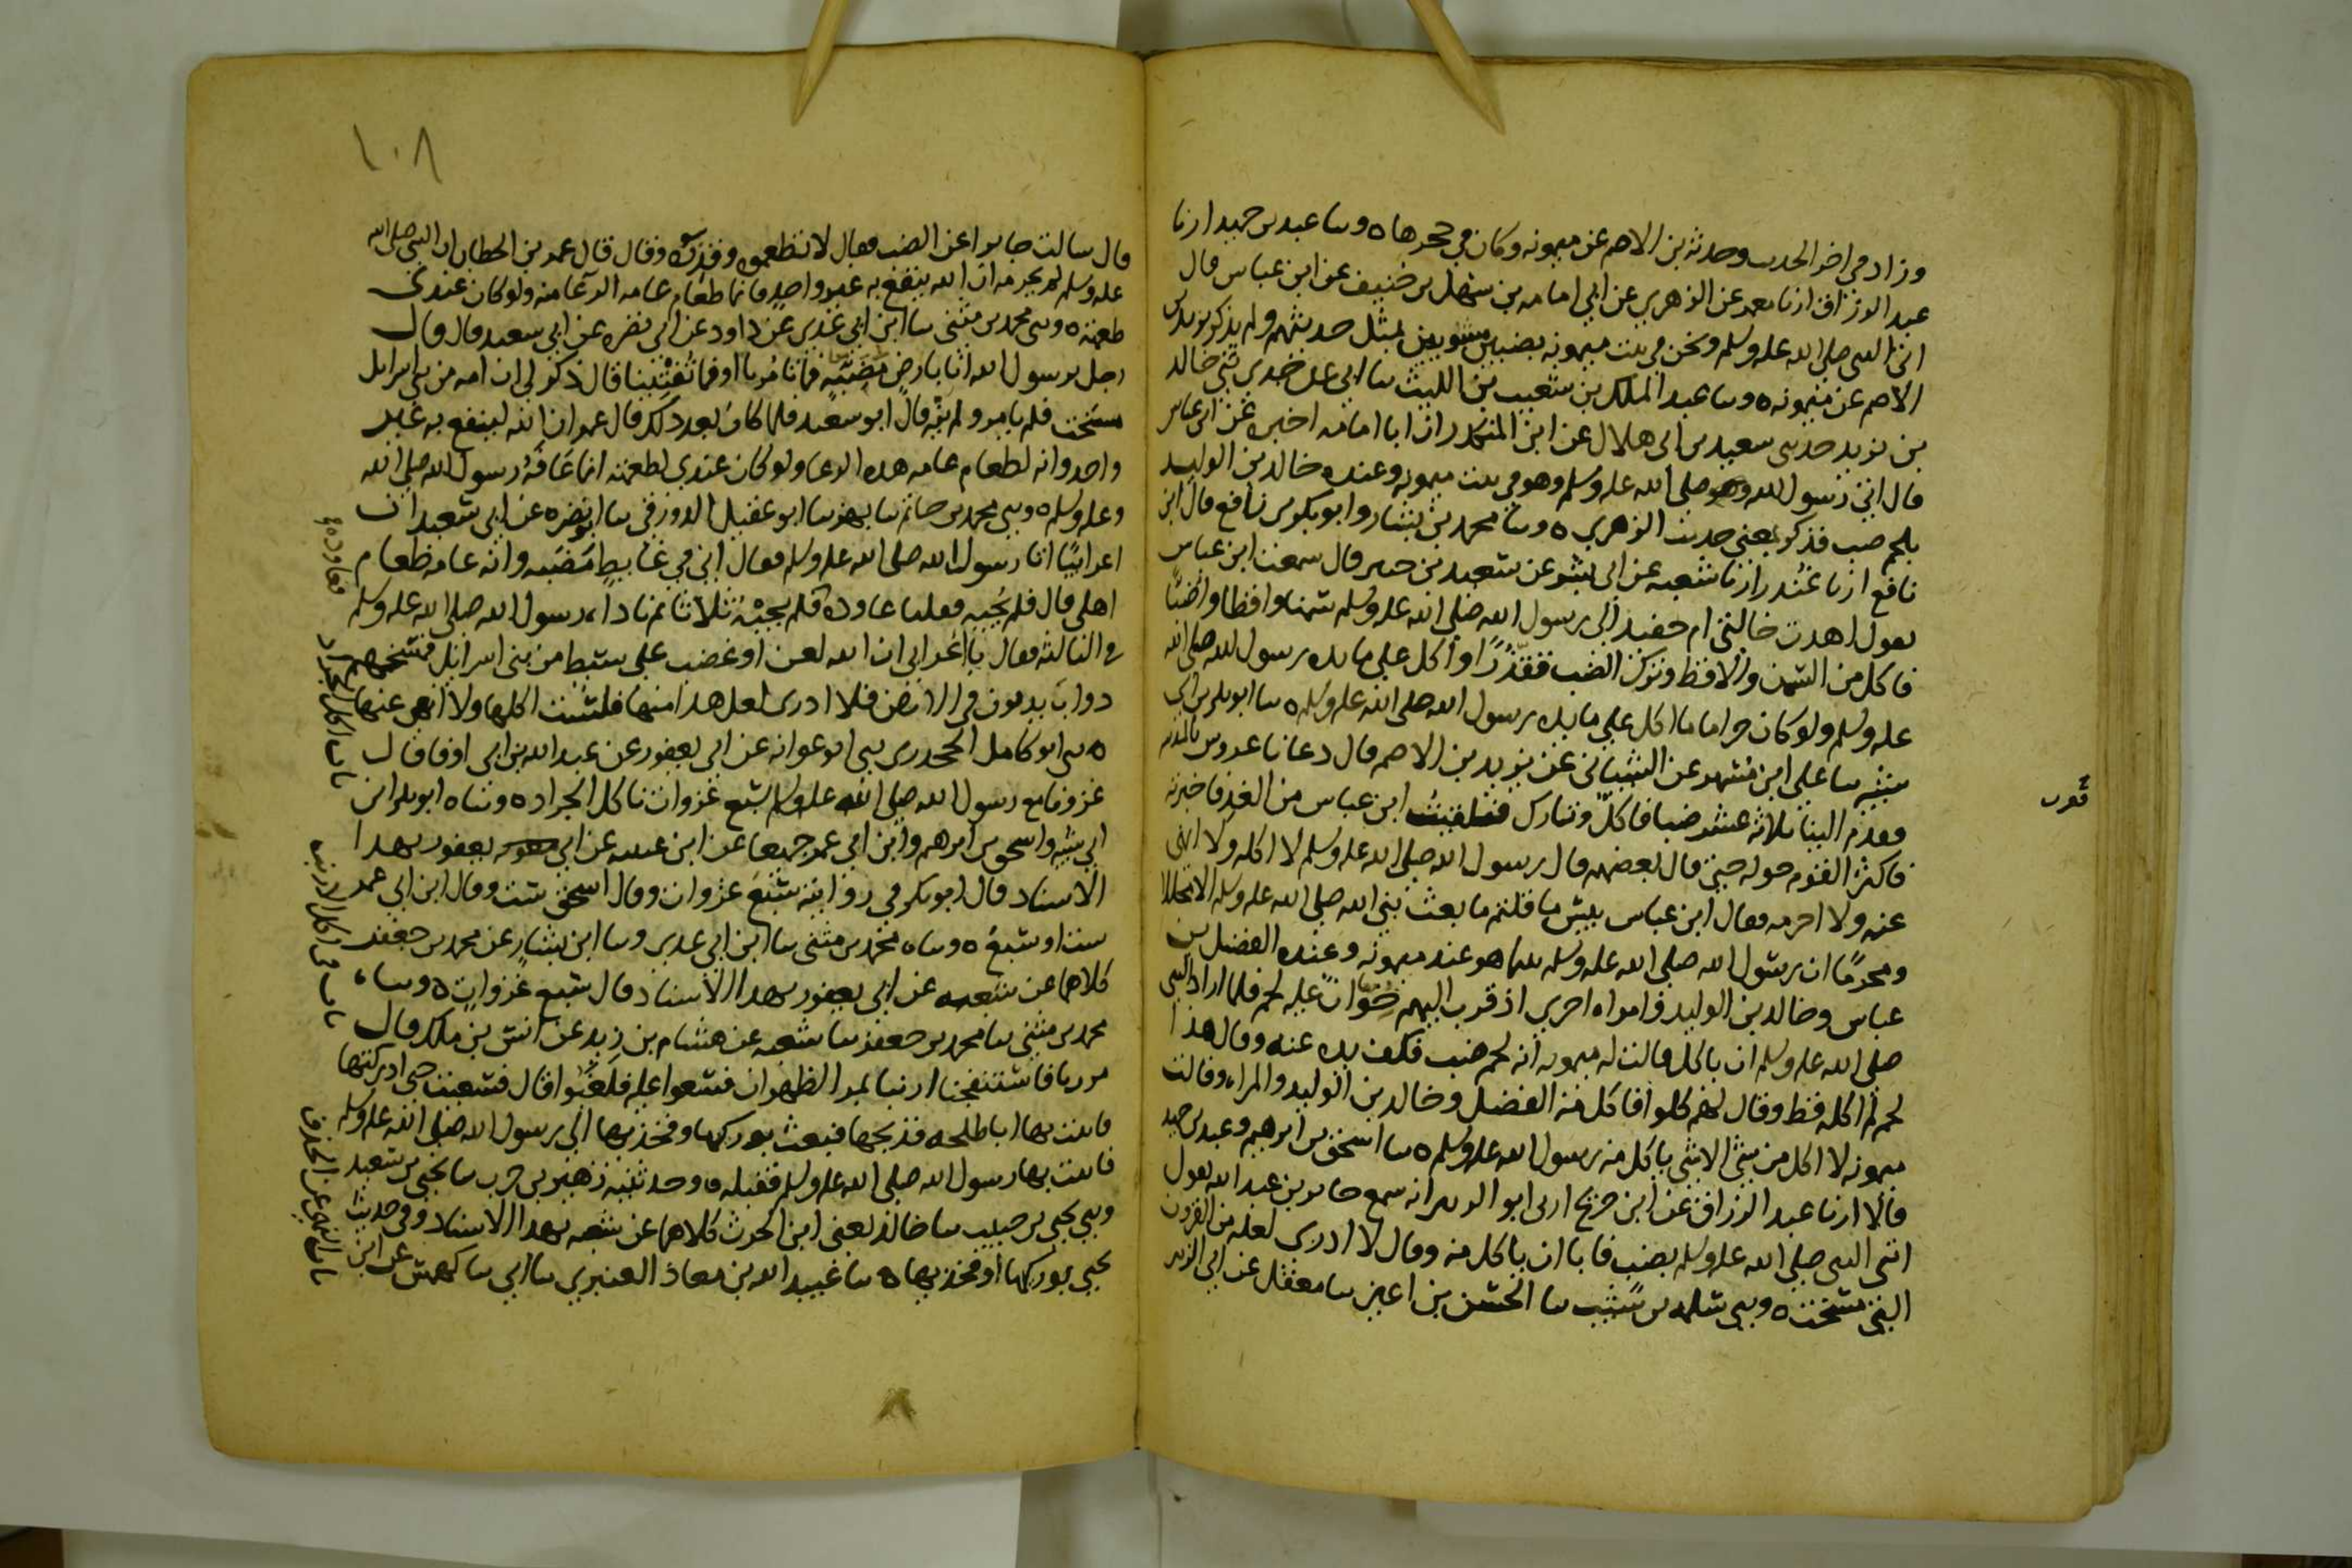 وزاد في اخر الحديث وحدثه بن الاصم عن ميمونه وكان في حجرها ه وسا عبد بن حميد ارنا
عبد الرزاق ارنا معمر عن الزهري عن ابي امامه بن سهل بن حنيف عن ابن عباس قال
اتى النبي صلى الله عليه وسلم ونحن في بيت ميمونه بضبين مشويين بمثل حديثهم ولم يذكر يزيد بن
الاصم عن ميمونه ه وسا عبد الملك بن شعيب بن الليث سا ابي عن جدي ثني خالد
بن يزيد حدثني سعيد بن ابي هلال عن ابن المنكدر ان ابا امامه اخبره عن ابن عباس
قال اتي رسول الله صلى الله عليه وسلم وهو في بيت ميمونه وعنده خالد بن الوليد
بلحم ضب فذكر بمعنى حديث الزهري ه وسا محمد بن بشار وابو بكر بن نافع قال ابن
نافع ارنا غندر ارنا شعبه عن ابي بشر عن سعيد بن جبير قال سمعت ابن عباس
يقول اهدت خالتي ام حفيد الى رسول الله صلى الله عليه وسلم سمنا واقطا واضبا
فاكل من السمن والاقط وترك الضب تقذرا واكل على مايده رسول الله صلى الله
عليه وسلم ولو كان حراما ما اكل على مايده رسول الله صلى الله عليه وسلم ه سا ابو بكر بن ابي
شيبه سا علي ابن مسهر عن الشيباني عن يزيد بن الاصم قال دعانا عروس بالمدينه
فقدم الينا ثلاثه عشر ضبا فاكل وتارك فلقيت ابن عباس من الغد فاخبرته
فاكثر القوم حوله حتى قال بعضهم قال رسول الله صلى الله عليه وسلم لا اكله ولا انهى
عنه ولا احرمه فقال ابن عباس بيس ما قلتم ما بعث نبي الله صلى الله عليه وسلم الا محللا
ومحرما ان رسول الله صلى الله عليه وسلم بينما هو عند ميمونه وعنده الفضل بن
عباس وخالد بن الوليد وامراه اخرى اذ قرب اليهم خوان عليه لحم فلما اراد النبي
صلى الله عليه وسلم ان ياكل قالت له ميمونه انه لحم ضب فكف يده عنه وقال هذا
لحم لم اكله قط وقال لهم كلوا فاكل منه الفضل وخالد بن الوليد والمراه وقالت
ميمونه لا اكل من شي الا شي ياكل منه رسول الله عليه وسلم ه سا اسحق بن ابرهيم وعبد بن حميد
قالا ارنا عبد الرزاق عن ابن جريج ارني ابو الزبير انه سمع جابر بن عبد الله يقول
اتي النبي صلى الله عليه وسلم بضب فابا ان ياكل منه وقال لا ادري لعله من القرون
التي مسخت ه وثني سلمه بن شبيب سا الحسن بن اعين سا معقل عن ابي الزبير
١٠٨
قال سالت جابرا عن الضب فقال لا تطعموه وقذره وقال قال عمر بن الخطاب ان النبي صلى الله
عليه وسلم لم يحرمه ان الله ينفع به غير واحد فانما طعام عامه الرعا منه ولو كان عندي
طعمته ه وثني محمد بن مثنى سا ابن ابي عدي عن داود عن ابي نضره عن ابي سعيد قال قال
رجل يرسول الله انا بارض مضبه فما تامرنا اوفما تفتينا قال ذكر لي ان امه من بني اسرايل
مسخت فلم يامر ولم ينه قال ابو سعيد فلما كان بعد ذلك قال عمر ان الله لينفع به غير
واحد وانه لطعام عامه هذه الرعا ولو كان عندي لطعمته انما عافه رسول الله صلى الله
وعليه وسلم ه وثني محمد بن حاتم سا بهز سا ابو عقيل الدورقي سا ابو نضره عن ابي سعيد ان
اعرابيا اتا رسول الله صلى الله عليه وسلم فقال اني في غايط مضبه وانه عامه طعام
اهلي قال فلم يجبه فقلنا عاوده فلم يجبه ثلاثا ثم ناداه رسول الله صلى الله عليه وسلم
في الثالثه فقال يا اعرابي ان الله لعن او غضب على سبط من بني اسرايل فمسخهم
دواب يدبون في الارض فلا ادري لعل هذا منها فلست اكلها ولا انهى عنها
ه ثني ابو كامل الجحدري ثني ابو عوانه عن ابي يعفور عن عبد الله بن ابي اوفا قال
غزونا مع رسول الله صلى الله عليه وسلم سبع غزوات ناكل الجراد ه وثناه ابو بكر ابن
ابي شيبه واسحق بن ابرهيم وابن ابي عمر جميعا عن ابن عيينه عن ابي يعفور بهذا
الاسناد قال ابو بكر في روايته سبع غزوات وقال اسحق ست وقال ابن ابي عمر
ست او سبع ه وساه محمد بن مثنى سا ابن ابي عدي وسا ابن بشار عن محمد بن جعفر
كلاهما عن شعبه عن ابي يعفور بهذا الاسناد قال سبع غزوات ه وساه
محمد بن مثنى سا محمد بن جعفر سا شعبه عن هشام بن زيد عن انس بن ملك قال
مررنا فاستنفجنا ارنبا بمر الظهران فسعوا عليه فلغبوا قال فسعيت حتى ادركتها
فاتيت بها ابا طلحه فذبحها فبعث بوركها وفخذيها الى رسول الله صلى الله عليه وسلم
فاتيت بها رسول الله صلى الله عليه وسلم فقبله ه وحدثنيه زهير بن حرب سا يحيى بن سعيد
وثني يحيى بن حبيب سا خالد يعني ابن الحرث كلاهما عن شعبه بهذا الاسناد وفي حديث
يحيى بوركها او فخذيها ه سا عبيد الله بن معاذ العنبري سا ابي سا كهمس عن ابن
فعاوده
باب اكل الجراد
باب في اكل الارنب
باب النهي عن الخذف